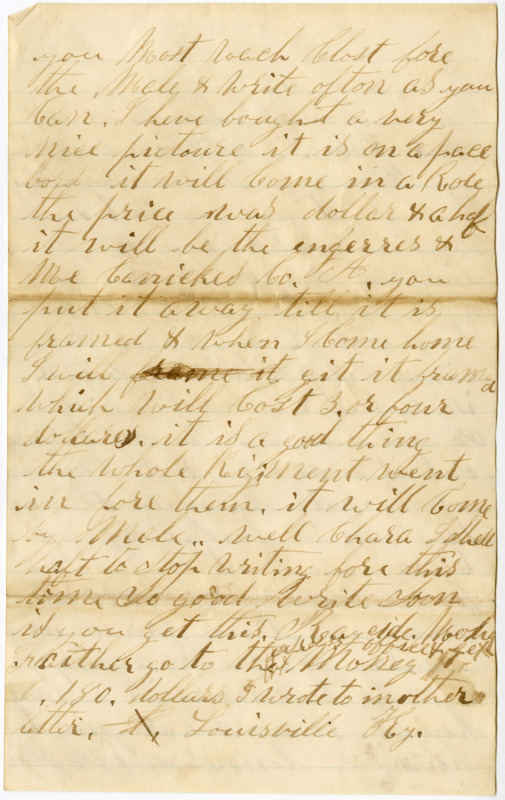 you Most wach Clost fore
the Male & write ofton as you
Can. I heve bought a very
nice pictoure it is on a pace
bord it will Come in a Role
the price was dollar & a half
it will be the enferres &
Me Co. A. you
put it away till it is
framed & when I Come home
I will frame it git it framed
which will Cost 3. or four
dollars. it is a good thing
the whole Rigiment went
in fore them. it will Come
by Male.. well Chara I shell
haft to stop writing fore this
time So good write soon
is you get this.
Faither go to the Money
150. dollars I wrote to in other
letter. Louisville Ky.